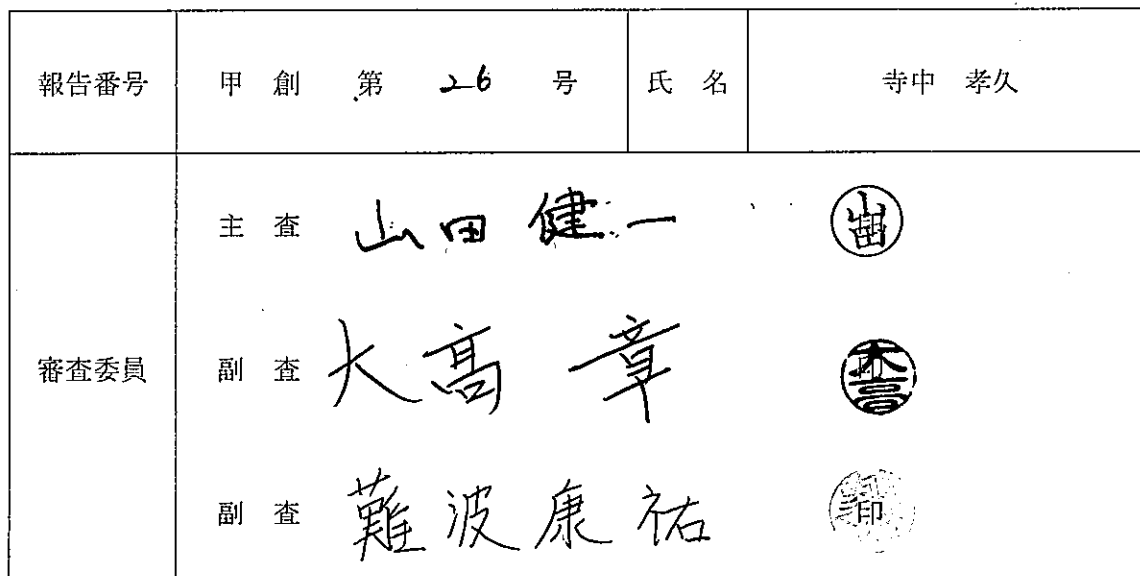 報告番号 甲 創 第 26 号 氏 名 寺中 孝久
審査委員
主 査 山田健一 山田
副 査 大髙 章 大髙
副 査 難波康祐 印